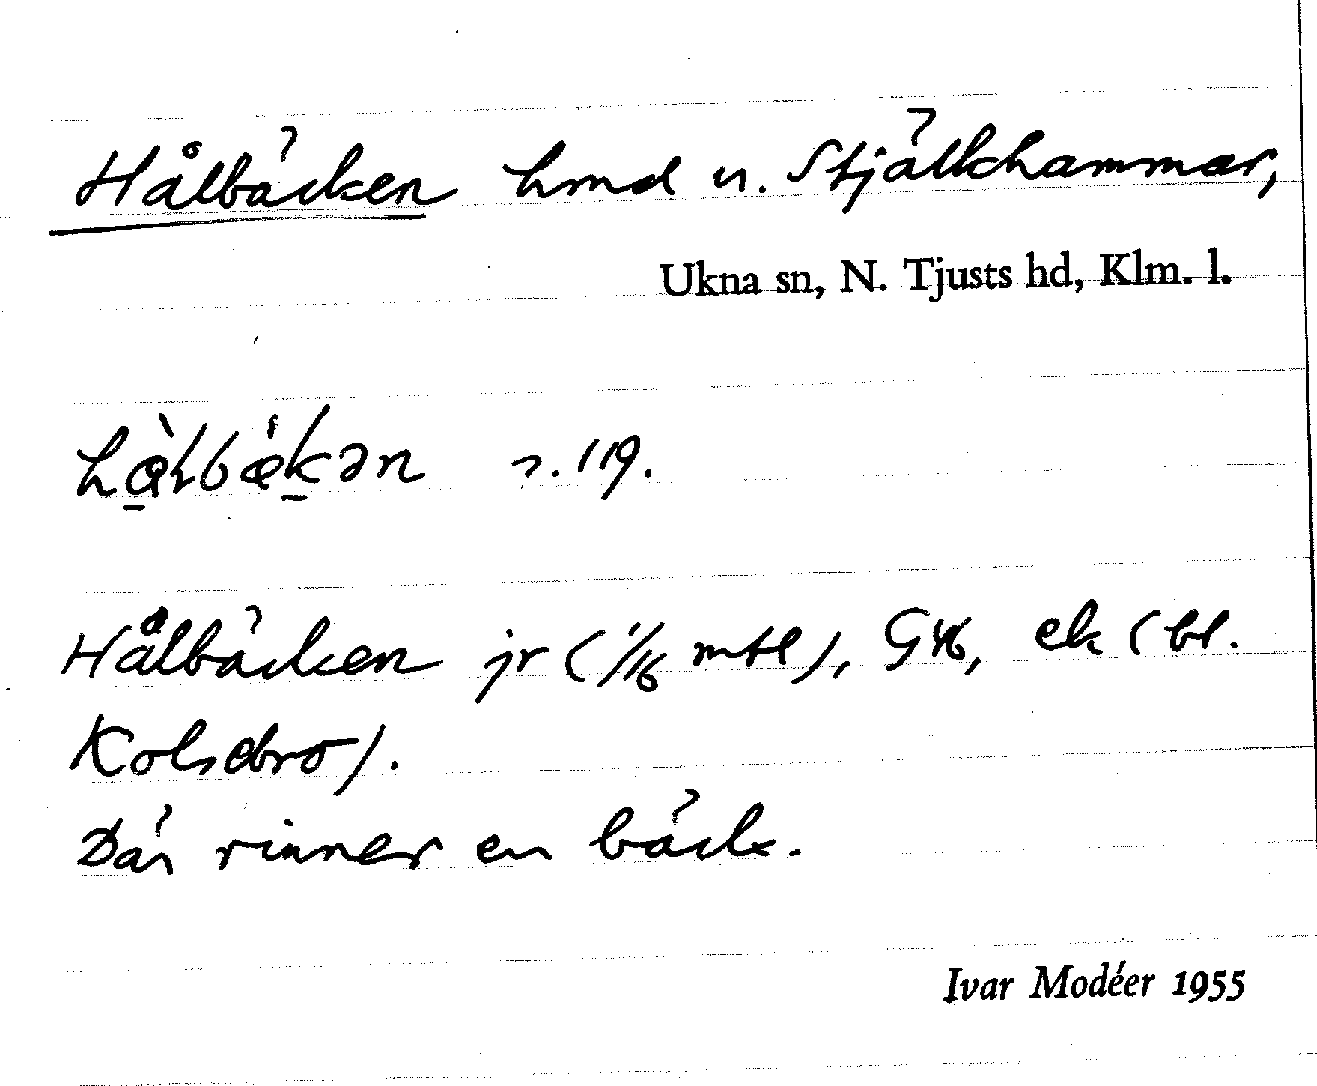 Hålbäcken hmd u. Stjälkhammar,
Ukna sn, N. Tjusts hd, Klm. l.
119.
Hålbäcken jr (1/16 mtl), G46, ek (bl.
Kolsebro).
Där rinner en bäck.
Ivar Modéer 1955